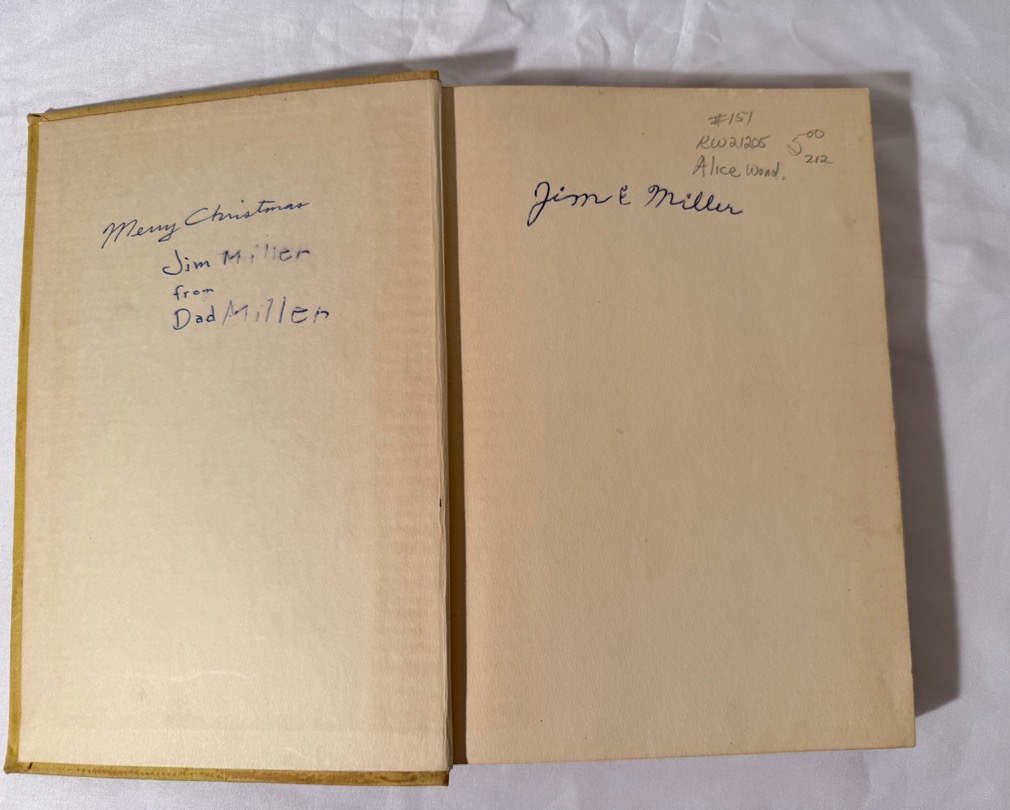 Merry Christmas
Jim Miller
from
Dad Miller
#151
RW21205 5.00
212
Alice Wond.
Jim E Miller